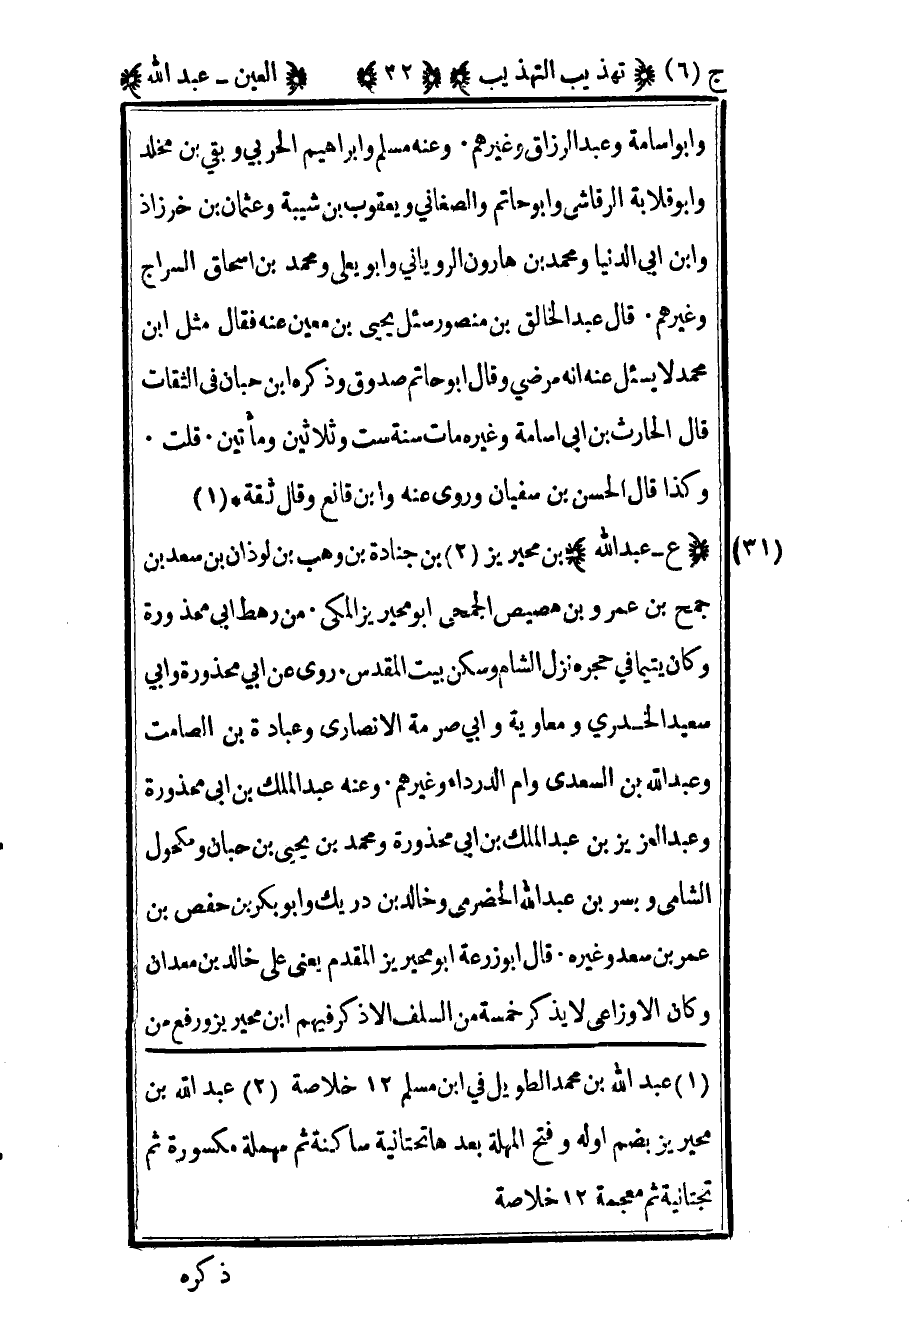 ج (٦) ﴿ تهذيب التهذيب ﴾ ﴿ ٣٢ ﴾ ﴿ العين ـ عبد الله ﴾
وابواسامة وعبدالرزاق وغيرهم · وعنه مسلم وابراهيم الحربي وبقي بن مخلد
وابوقلابة الرقاشى وابوحاتم والصغاني ويعقوب بن شيبة وعثمان بن خرزاذ
وابن ابي الدنيا ومحمد بن هارون الروياني وابو يعلى ومحمد بن اسحاق السراج
وغيرهم · قال عبدالخالق بن منصور سئل يحيى بن معين عنه فقال مثل ابن
محمد لا يسئل عنه انه مرضي وقال ابوحاتم صدوق وذكره ابن حبان فى الثقات
قال الحارث بن ابي اسامة وغيره مات سنة ست وثلاثين ومأتين · قلت ·
وكذا قال الحسن بن سفيان وروى عنه وابن قانع وقال ثقة * (١)
(٣١) ﴿ ع ـ عبدالله ﴾ بن محيريز (٢) بن جنادة بن وهب بن لوذان بن سعد بن
جمح بن عمرو بن هصيص الجمحى ابو محيريز المكى · من رهط ابي محذورة
وكان يتيما في حجره نزل الشام وسكن بيت المقدس · روى عن ابي محذورة وابي
سعيد الخدري و معاوية و ابي صرمة الانصارى وعبادة بن الصامت
وعبدالله بن السعدى وام الدرداء وغيرهم · وعنه عبدالملك بن ابي محذورة
وعبدالعزيز بن عبدالملك بن ابي محذورة ومحمد بن يحيى بن حبان ومكحول
الشامى و بسر بن عبدالله الحضرمى وخالد بن دريك وابوبكر بن حفص بن
عمر بن سعد وغيره · قال ابوزرعة ابو محيريز المقدم يعنى على خالد بن معدان
وكان الاوزاعى لا يذكر خمسة من السلف الا ذكر فيهم ابن محيريز ورفع من
(١) عبد الله بن محمد الطويل في ابن مسلم ١٢ خلاصة (٢) عبد الله بن
محيريز بضم اوله و فتح المهلة بعد هاتحتانية ساكنة ثم مهملة مكسورة ثم
تحتانية ثم معجمة ١٢ خلاصة
ذكره